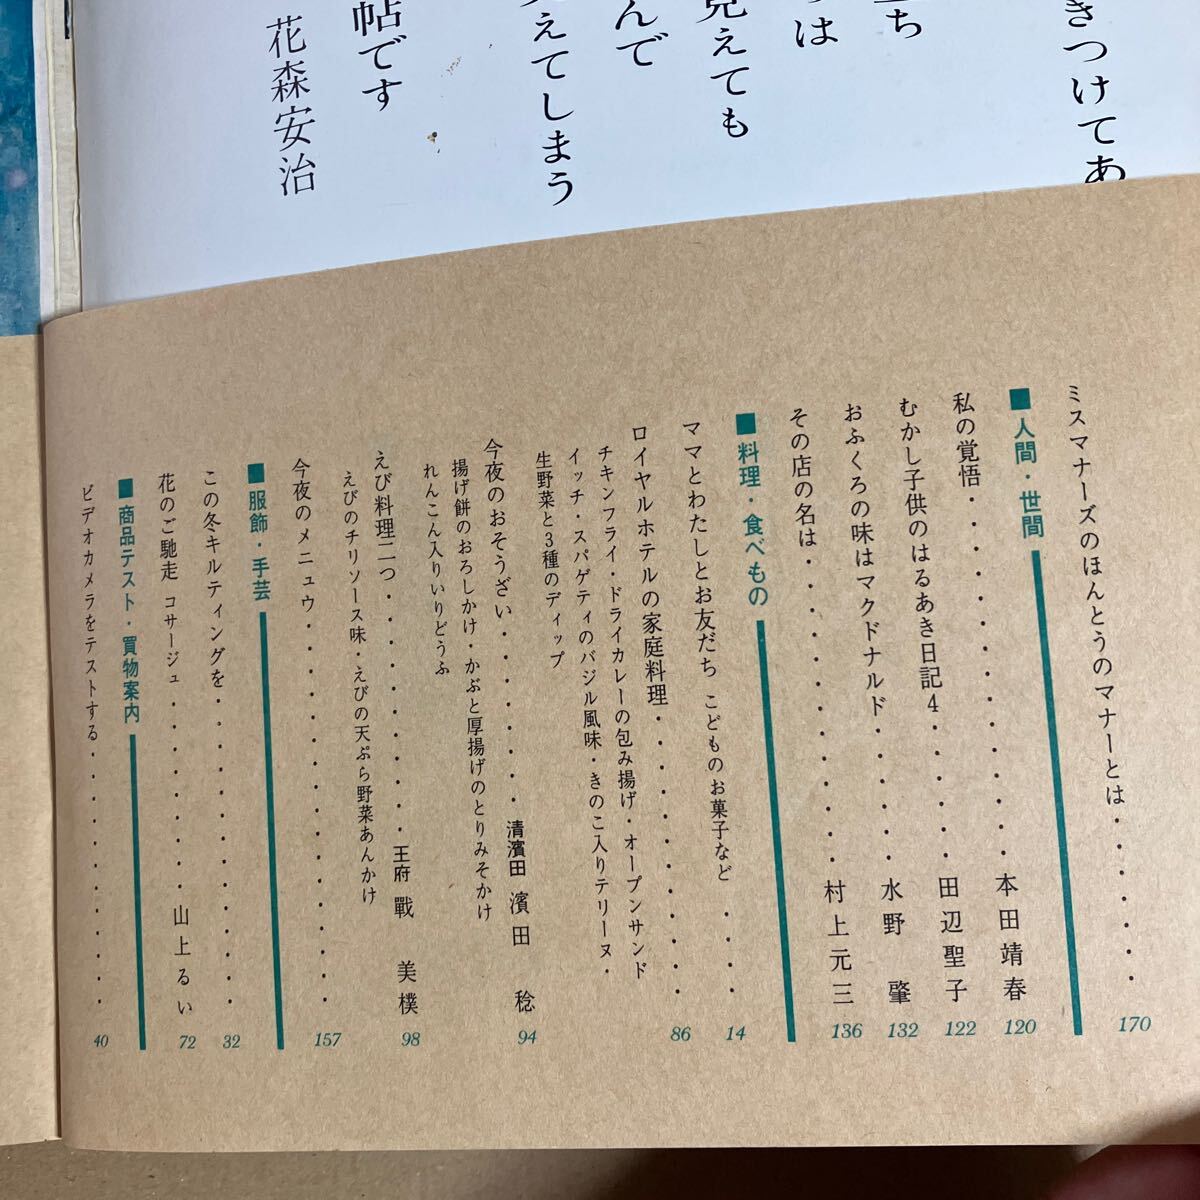 きつけてあ
ち
は
見えても
んで
えてしまう
帖です
花森安治
ミスマナーズのほんとうのマナーとは・・・・・・・170
■人間・世間
私の覚悟・・・・・・・・・・・・本田靖春 120
むかし子供のはるあき日記4・・・・・田辺聖子 122
おふくろの味はマクドナルド・・・・・水野 肇 132
その店の名は・・・・・・・・・・・村上元三 136
■料理・食べもの
ママとわたしとお友だち こどものお菓子など・・・・14
ロイヤルホテルの家庭料理・・・・・・・・・・・86
チキンフライ・ドライカレーの包み揚げ・オープンサンド
イッチ・スパゲティのバジル風味・きのこ入りテリーヌ・
生野菜と3種のディップ
今夜のおそうざい・・・・・・・・清濱田 濱田 稔 94
揚げ餅のおろしかけ・かぶと厚揚げのとりみそかけ
れんこん入りいりどうふ
えび料理二つ・・・・・・・・・・王府 戰 美樸 98
えびのチリソース味・えびの天ぷら野菜あんかけ
今夜のメニュウ・・・・・・・・・・・・・・・157
■服飾・手芸
この冬キルティングを・・・・・・・・・・・・32
花のご馳走 コサージュ・・・・・・・山上るい 72
■商品テスト・買物案内
ビデオカメラをテストする・・・・・・・・・・・40